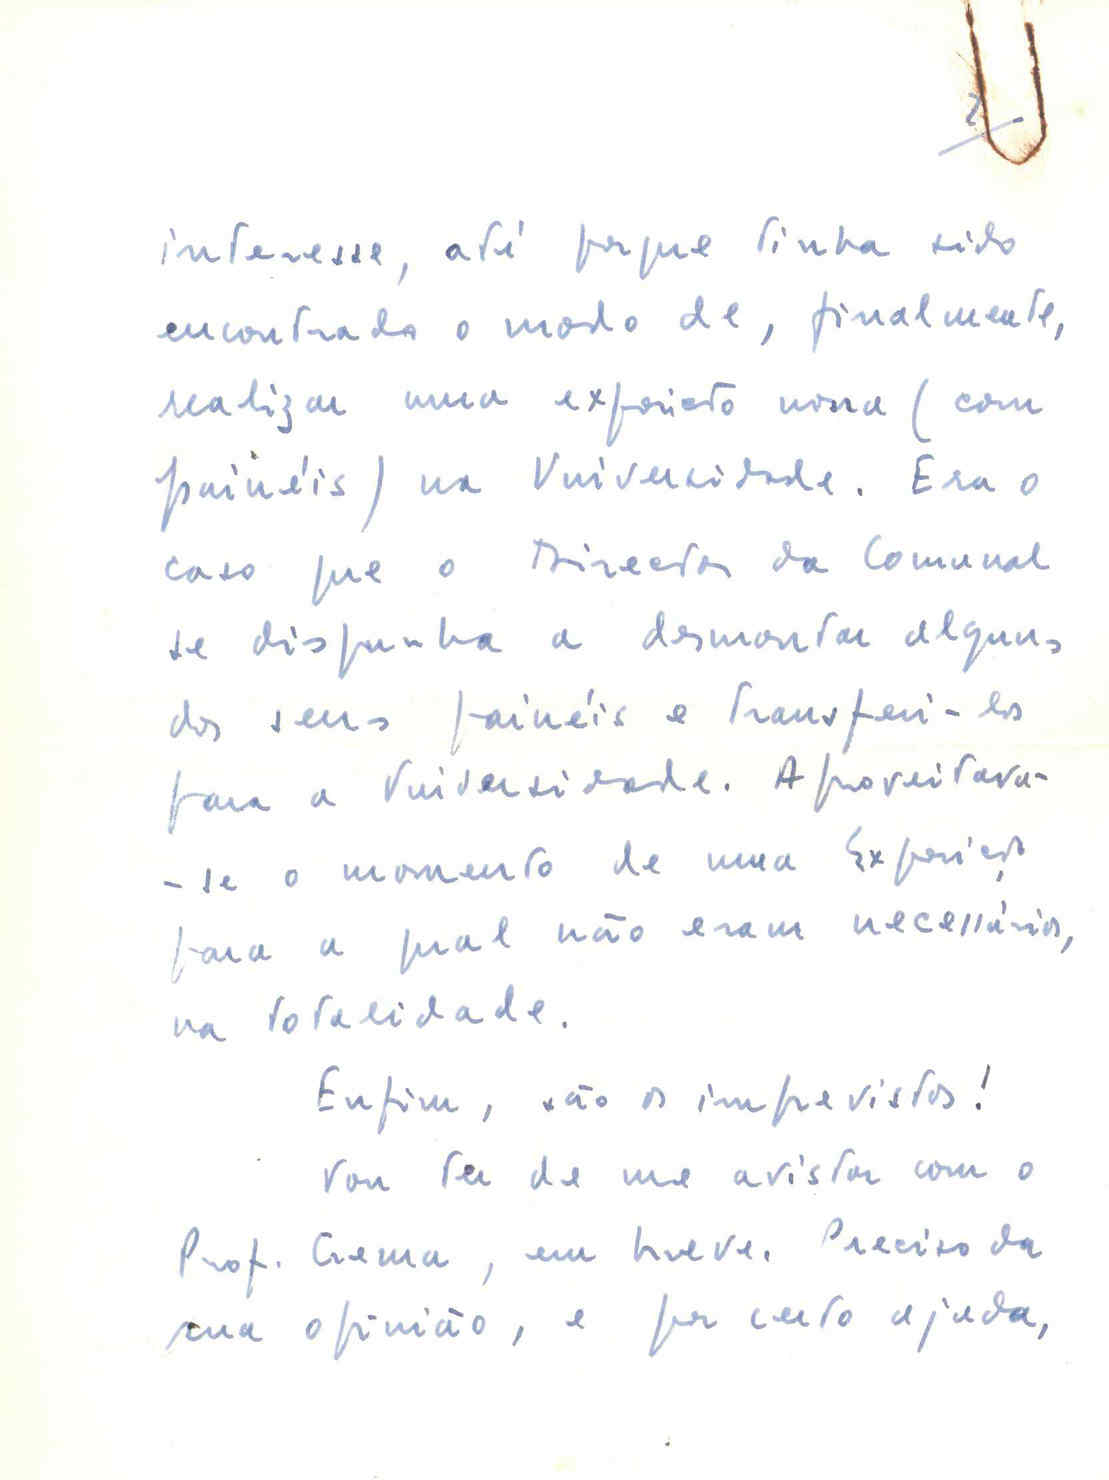 2.
interesse, até porque tinha sido
encontrado o modo de, finalmente,
realizar uma exposição nossa (com
painéis) na Universidade. Era o
caso que o Director da Comunal
se dispunha a desmontar alguns
dos seus painéis e transferi-los
para a Universidade. Aproveitava-
-se o momento de uma Exposição
para a qual não eram necessários,
na totalidade.
Enfim, são os imprevistos!
Vou ter de me avistar com o
Prof. Crema, em breve. Preciso da
sua opinião, e por certo ajuda,